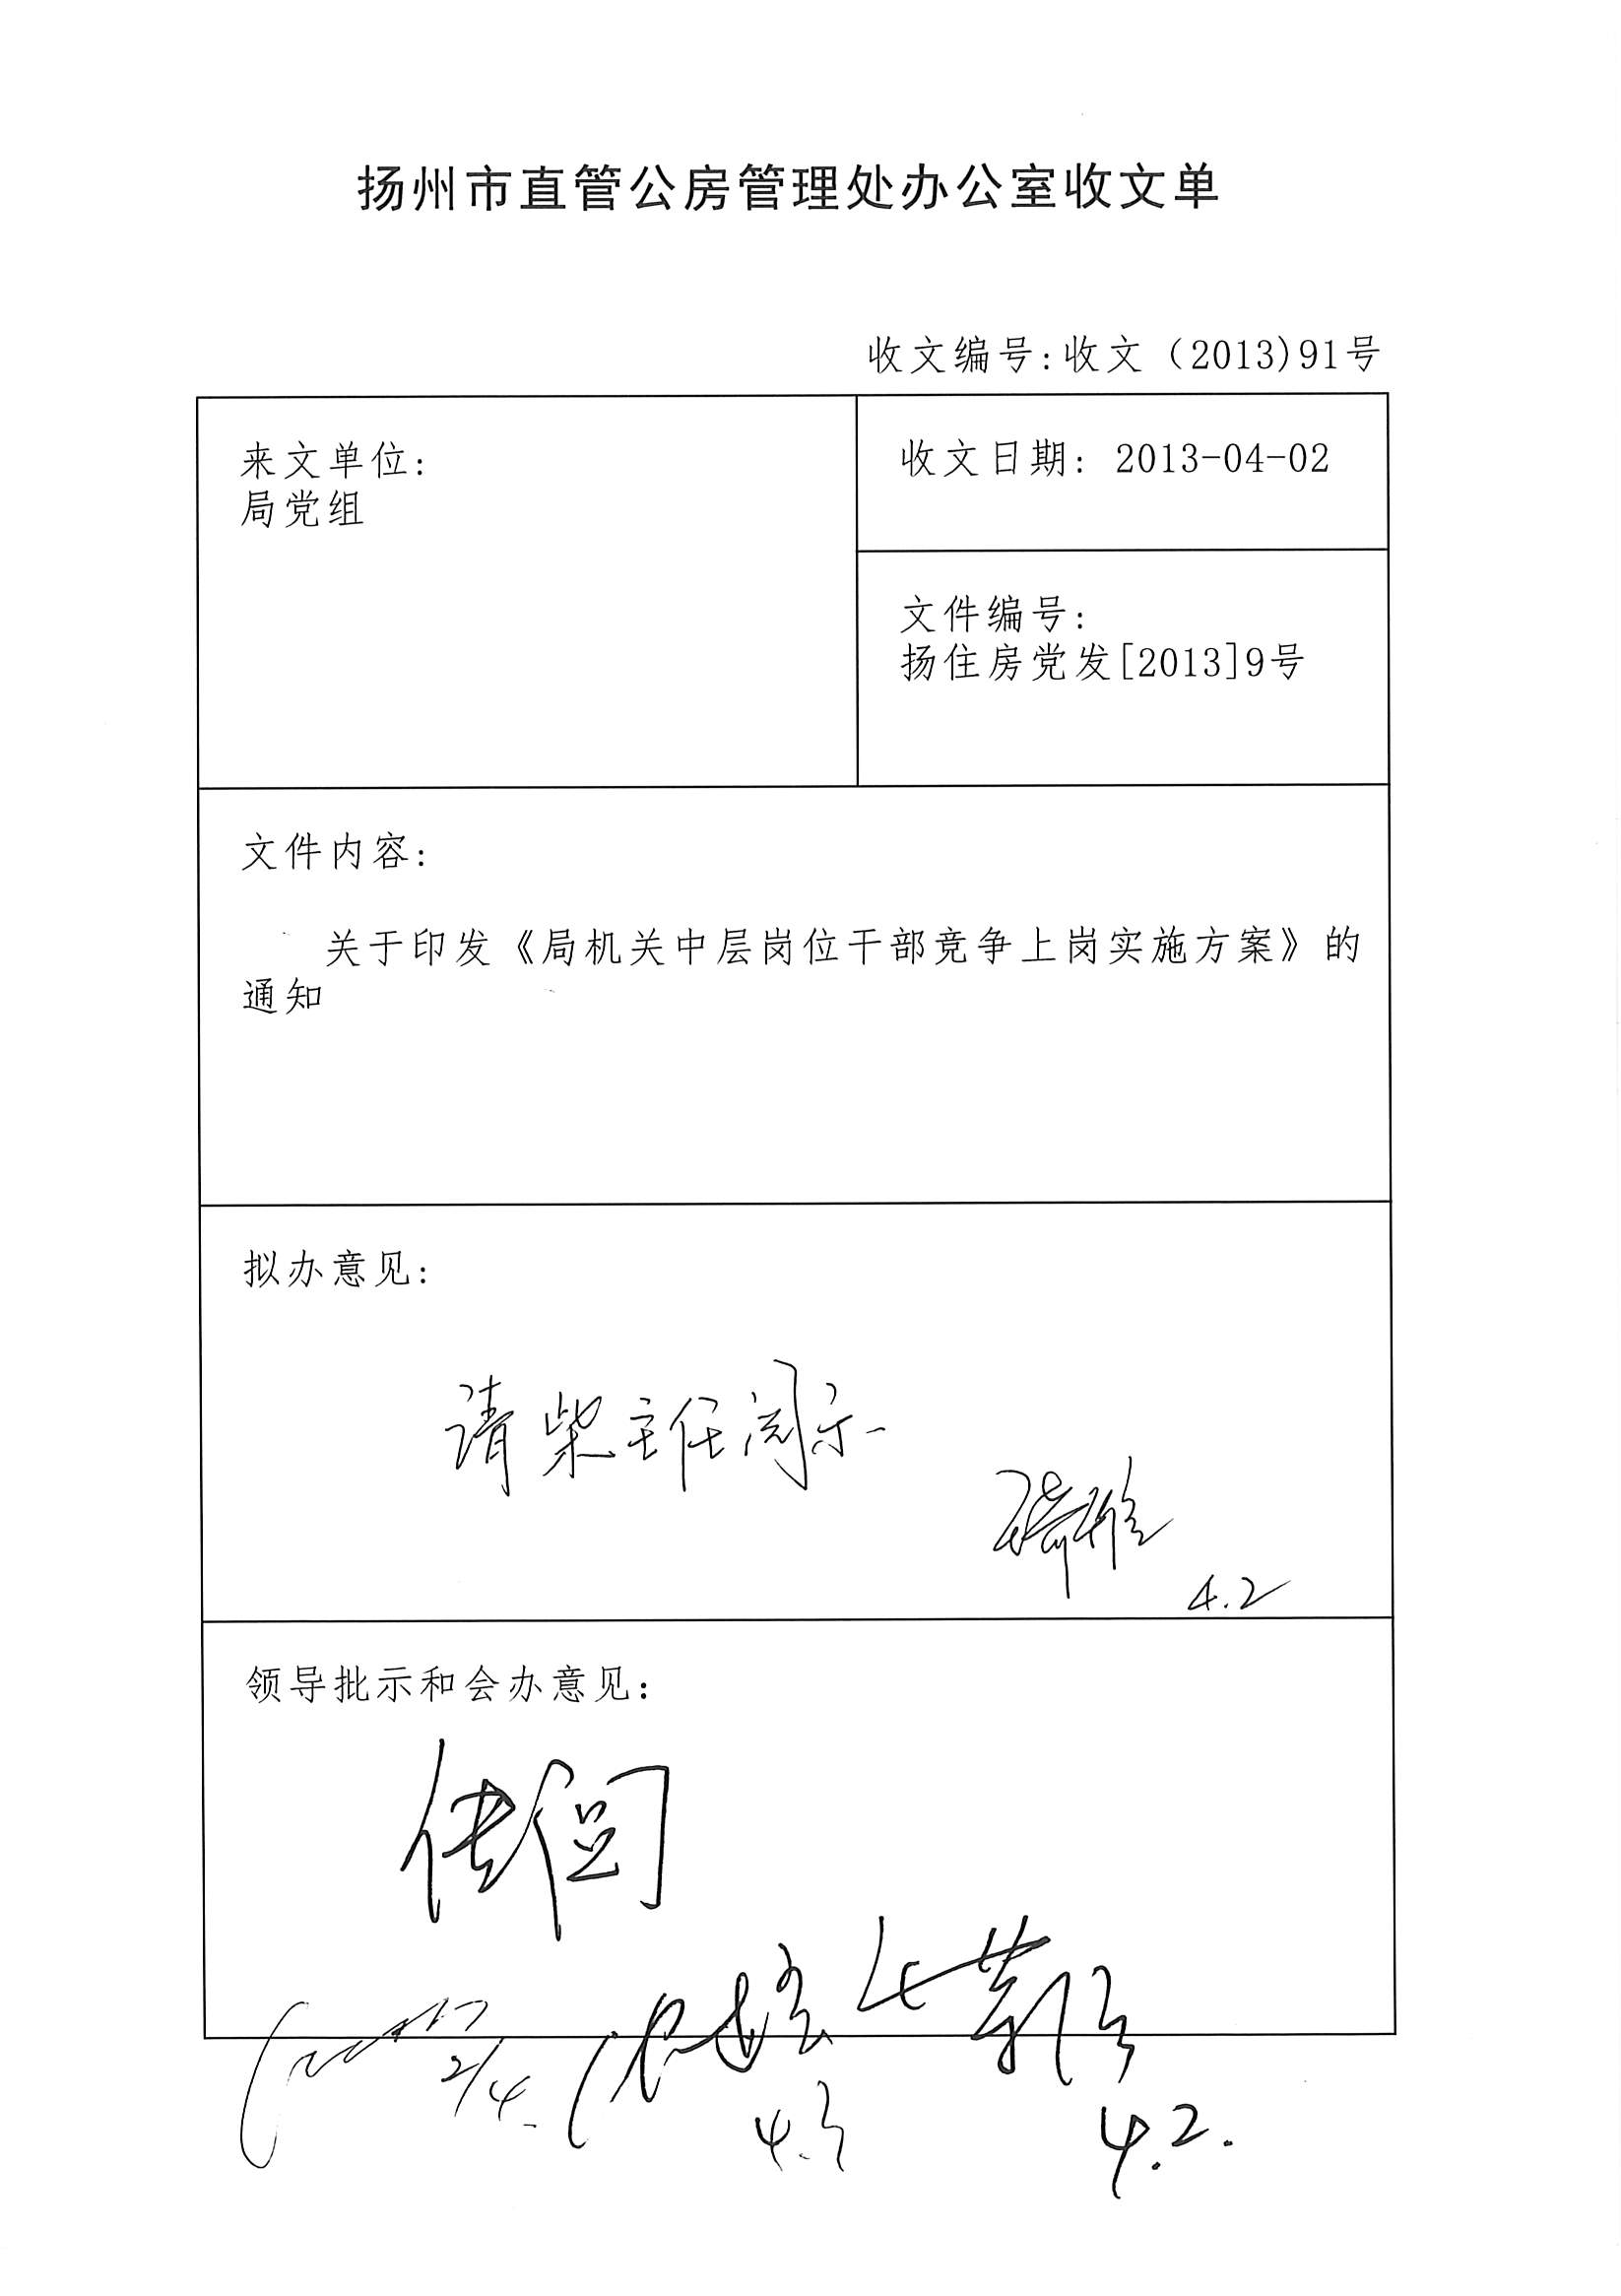 扬州市直管公房管理处办公室收文单
收文编号:收文（2013)91号
来文单位:
局党组
收文日期: 2013-04-02
文件编号:
扬住房党发[2013]9号
文件内容:
关于印发《局机关中层岗位干部竞争上岗实施方案》的
通知
拟办意见:
请柴主任阅示
4.2
领导批示和会办意见:
传阅
2/4.
4.3
4.2.